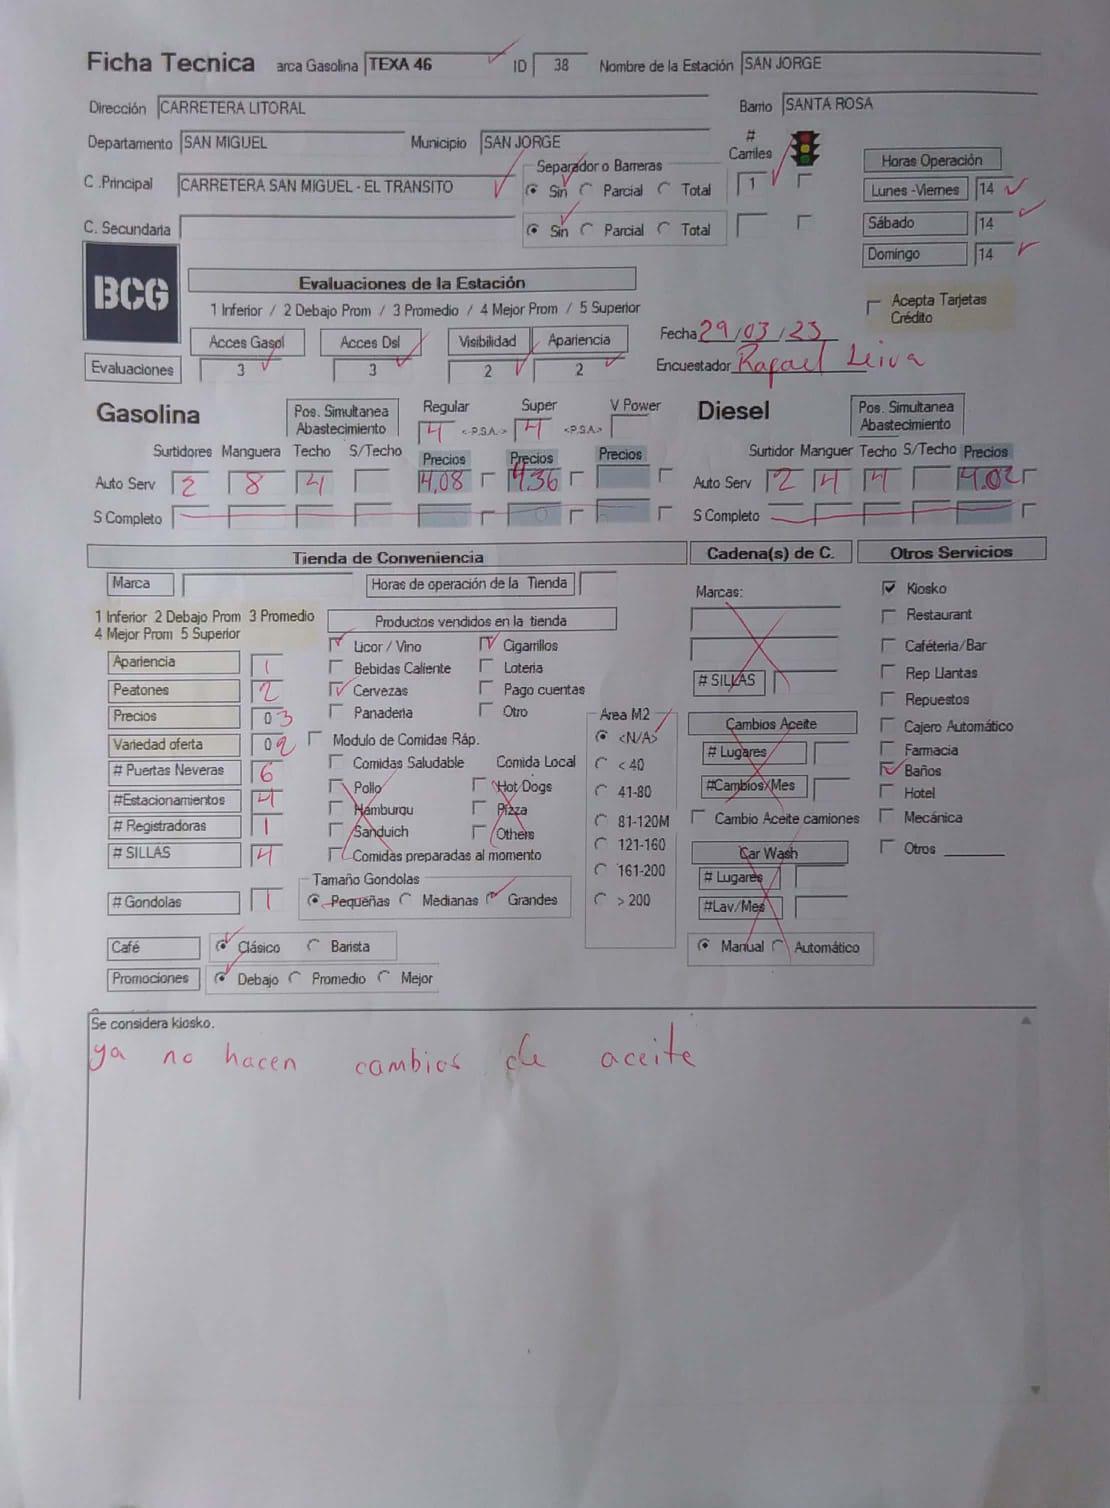 Ficha Tecnica arca Gasolina TEXA 46 ID 38 Nombre de la Estación SAN JORGE
Dirección CARRETERA LITORAL Barrio SANTA ROSA
Departamento SAN MIGUEL Municipio SAN JORGE # Carriles
C .Principal CARRETERA SAN MIGUEL - EL TRANSITO Separador o Barreras Sin Parcial Total 1
Horas Operación
Lunes -Viernes 14
C. Secundaria Sin Parcial Total
Sábado 14
Domingo 14
BCG
Evaluaciones de la Estación
1 Inferior / 2 Debajo Prom / 3 Promedio / 4 Mejor Prom / 5 Superior
Acepta Tarjetas
Crédito
Acces Gasol Acces Dsl Visibilidad Apariencia
Fecha 29/03/23
Evaluaciones 3 3 2 2
Encuestador Rafael Leiva
Gasolina Pos. Simultanea Abastecimiento Regular Super V Power
4 <-P.S.A.-> 4 <P.S.A.>
Diesel Pos. Simultanea Abastecimiento
Surtidores Manguera Techo S/Techo Precios Precios Precios
Surtidor Manguer Techo S/Techo Precios
Auto Serv 2 8 4 4.08 4.36
Auto Serv 2 4 4 4.02
S Completo
S Completo
Tienda de Conveniencia Cadena(s) de C. Otros Servicios
Marca Horas de operación de la Tienda
Marcas:
Kiosko
1 Inferior 2 Debajo Prom 3 Promedio
4 Mejor Prom 5 Superior
Productos vendidos en la tienda
Restaurant
Licor / Vino Cigarrillos
Caféteria/Bar
Apariencia 1
Bebidas Caliente Loteria
# SILLAS
Rep Llantas
Peatones 2
Cervezas Pago cuentas
Repuestos
Precios 0 3
Panaderia Otro
Area M2
Cambios Aceite
Cajero Automático
Variedad oferta 0 2
Modulo de Comidas Ráp.
<N/A>
# Lugares
Farmacia
# Puertas Neveras 6
Comidas Saludable Comida Local
< 40
Baños
#Estacionamientos 4
Pollo Hot Dogs
41-80
#Cambios/Mes
Hotel
# Registradoras 1
Hamburqu Pizza
81-120M
Cambio Aceite camiones
Mecánica
# SILLAS 4
Sanduich Others
121-160
Car Wash
Otros
Comidas preparadas al momento
161-200
# Lugares
# Gondolas 1
Tamaño Gondolas
Pequeñas Medianas Grandes
> 200
#Lav/Mes
Café Clásico Barista
Manual Automático
Promociones Debajo Promedio Mejor
Se considera kiosko.
ya no hacen cambios de aceite